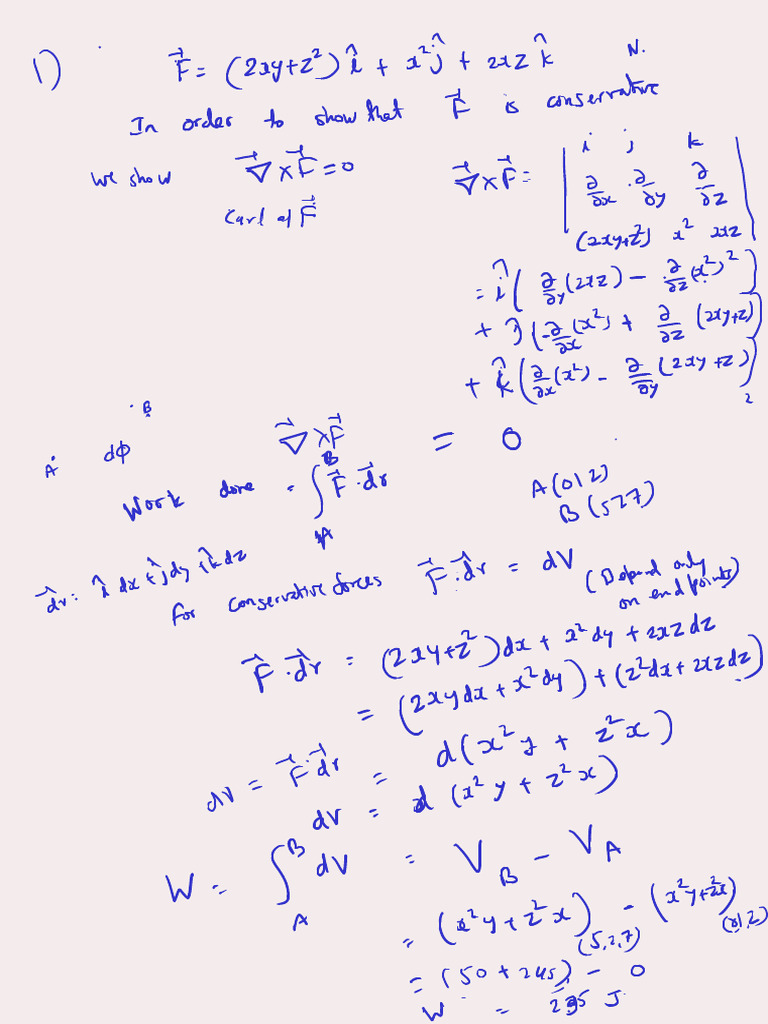 1) F⃗ = (2xy+z²) î + x² ĵ + 2xz k̂ N.
In order to show that F⃗ is conservative
we show ∇⃗ × F⃗ = 0
Curl of F⃗
∇⃗ × F⃗ = | i j k
∂/∂x ∂/∂y ∂/∂z
(2xy+z²) x² 2xz |
= î ( ∂/∂y (2xz) − ∂/∂z (x²)² )
+ ĵ ( −∂/∂x (x²) + ∂/∂z (2xy+z) )
+ k̂ ( ∂/∂x (x²) − ∂/∂y (2xy+z) )
2
A B dϕ
∇⃗ × F⃗ = 0
Work done = ∫_A^B F⃗ · dr⃗
A(012)
B(527)
dr⃗: î dx + ĵ dy + k̂ dz
for conservative forces F⃗ · dr⃗ = dV (Depend only
on end points)
F⃗ · dr⃗ = (2xy+z²)dx + x²dy + 2xz dz
= (2xy dx + x²dy) + (z²dx + 2xz dz)
dV = F⃗ · dr⃗ = d(x²y + z²x)
dV = d (x²y + z²x)
W = ∫_A^B dV = V_B − V_A
= (x²y + z²x)_(5,2,7) − (x²y + z²x)_(0,1,2)
= (50 + 245) − 0
W = 295 J.